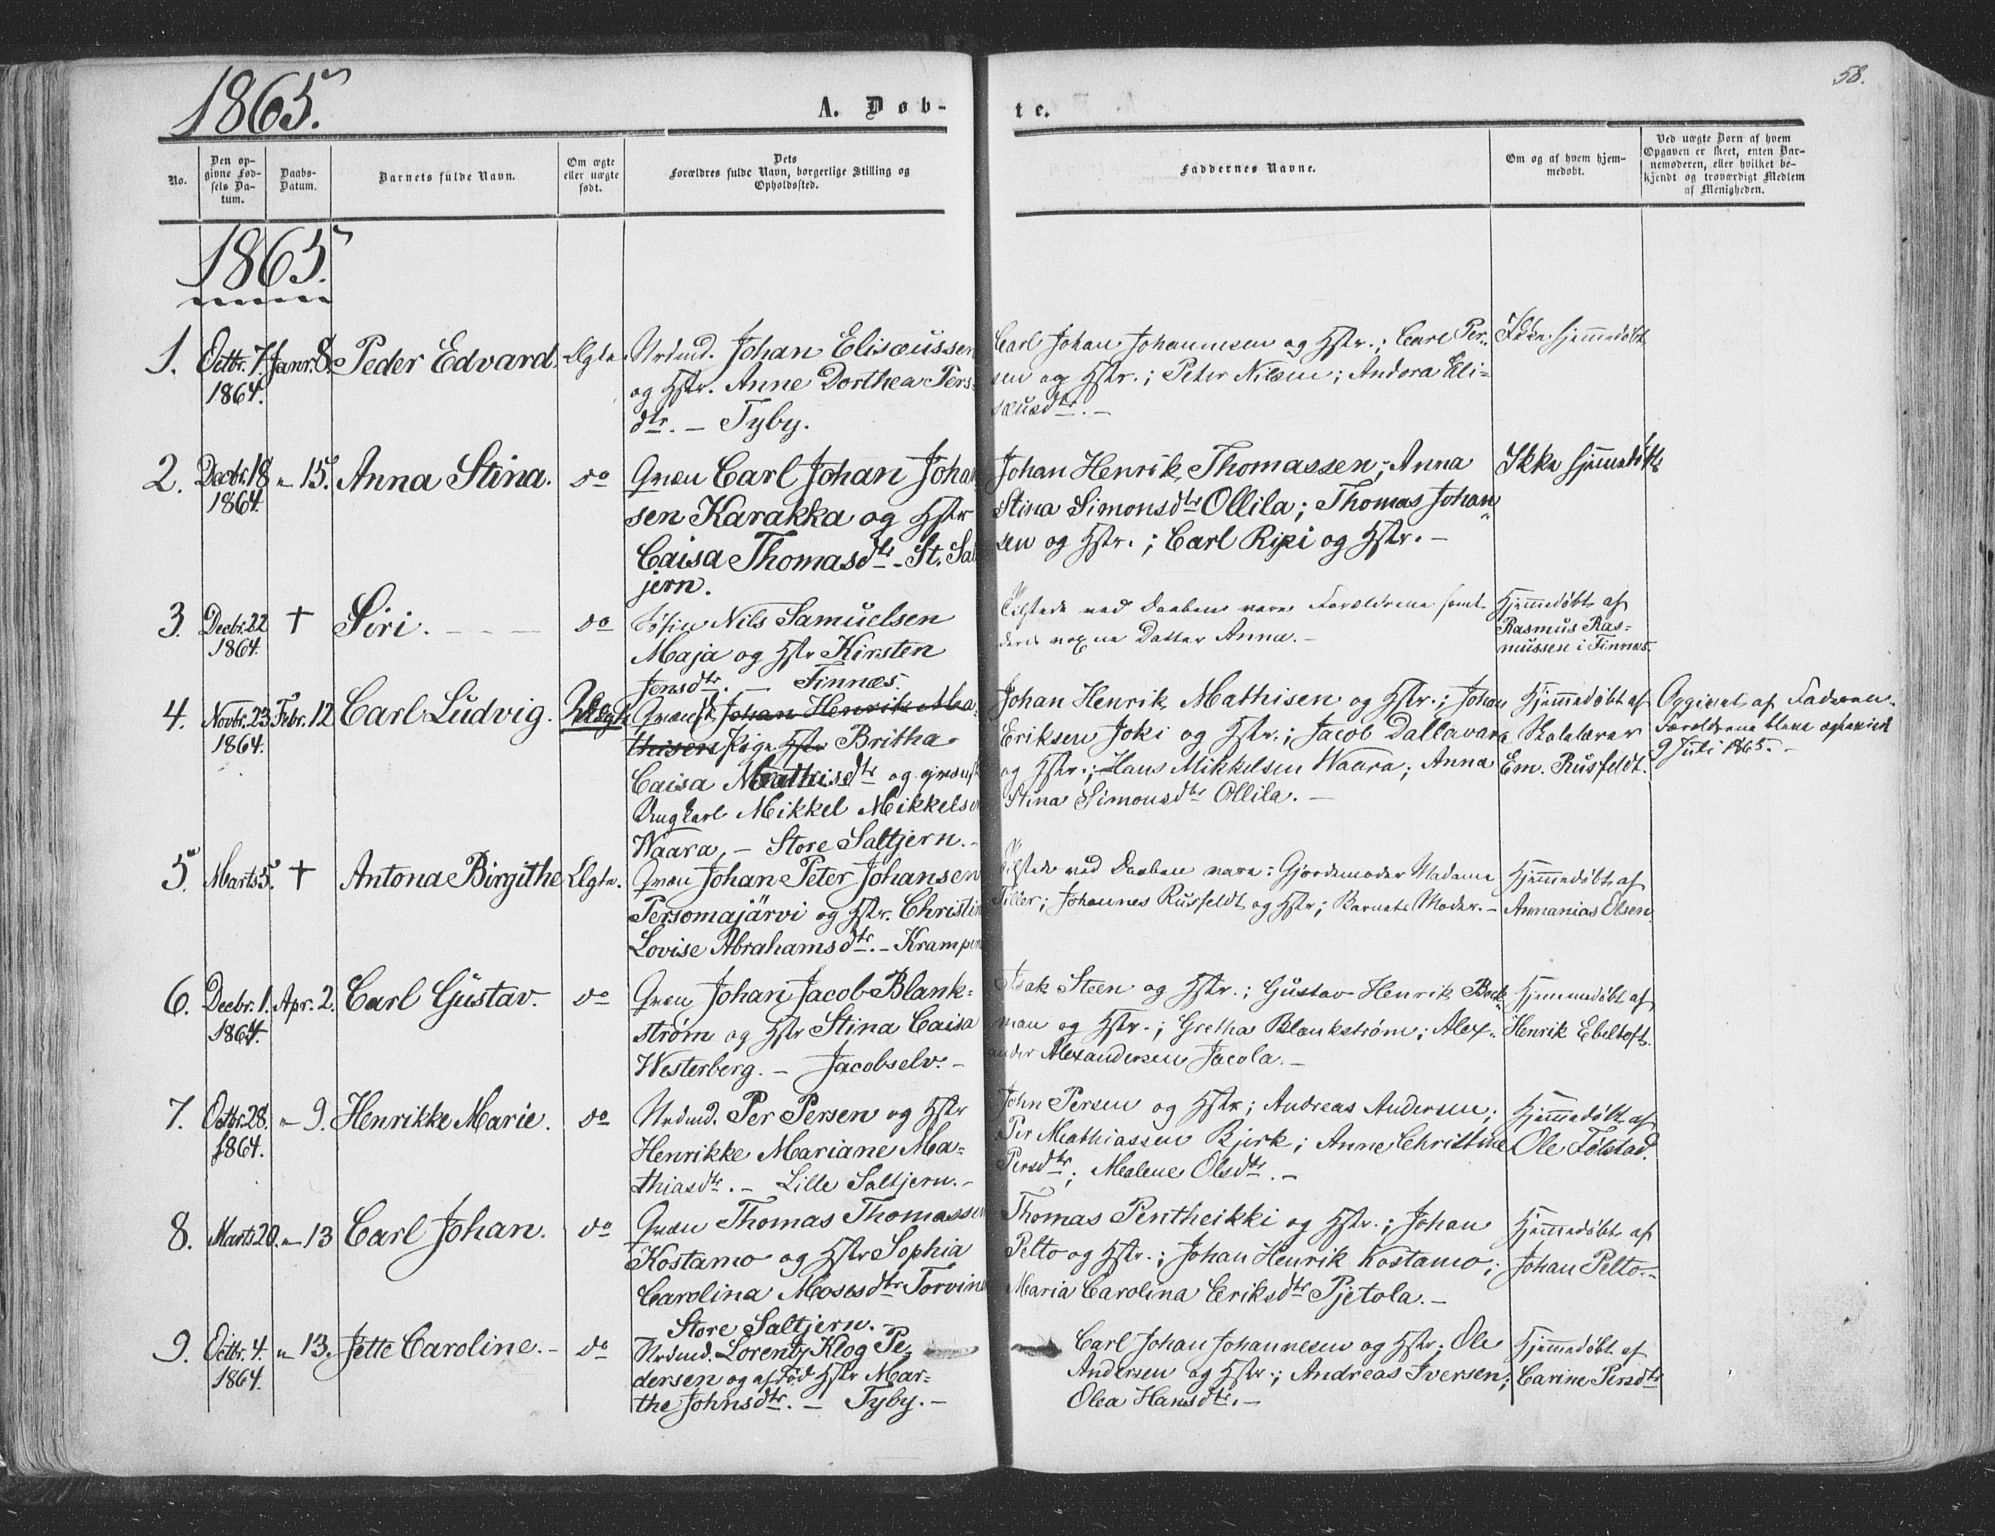 1865.
A. Døb-
te.
58.
No.
Den op-
givne Fød-
sels Da-
tum.
Daabs-
Datum.
Barnets fulde Navn.
Om ægte
eller uægte
født.
Dets
Forældres fulde Navn, borgerlige Stilling og
Opholdssted.
Faddernes Navne.
Om og af hvem hjem-
medøbt.
Ved uægte Børn af hvem
Opgaven er skeet, enten Bar-
nemoderen, eller hvilket be-
kjendt og troværdigt Medlem
af Menigheden.
1865.
1. Octbr. 7. Janr. 8. Peder Edvard. Ægte. Nrdmd. Johan Elisæussen
1864. og Hstr. Anne Dorthea Pers-
dtr. – Tyby.
Carl Johan Johannesen og Hstr.; Carl Per-
sen og Hstr.; Peter Nilsen; Andora Eli-
sæusdtr. –
Ikke hjemmedøbt
2. Decbr. 18 " 15. Anna Stina. do Qvæn Carl Johan Johan
1864. sen Karakka og Hstr
Caisa Thomasdtr – St. Sal
jern.
Johan Henrik Thomassen; Anna
Stina Simonsdtr Ollila; Thomas Johan
sen og Hstr.; Carl Ripi og Hstr. –
Ikke hjemmedøbt
3. Decbr. 22 † Siri. do Nils Samuelsen
1864. Maja og Hstr Kirsten
Jensdtr. – Finnæs.
Tilstede ved Daaben vare Forældrene samt
deres voxne Datter Anna. –
Hjemmedøbt af
Rasmus Ras-
mussen i Finnæs
4. Novbr. 23 Febr. 12 Carl Ludvig. Uægte Johan Henrik Ma-
1864. thisens Pige Britha
Caisa Mathisdtr og
Ungkarl Mikkel Mikkelsen
Waara, – Store Saltjern. –
Johan Henrik Mathisen og Hstr.; Johan
Eriksen Joki og Hstr.; Jacob Dallavara
og Hstr.; Hans Mikkelsen Waara; Anna
Stina Simonsdtr Ollila. –
Hjemmedøbt af
Skolelærer
Em. Rusfeldt.
Opgivet af Faderen.
Forældrene bleve ægteviet
9 Juli 1865. –
5. Marts 5. † Antona Birgithe Ægte. Qvæn Johan Peter Johansen
Persomajärvi og Hstr. Christin
Lovise Abrahamsdtr. – Krampen
Tilstede ved Daaben vare: Gjordemoder Madame
Tiller; Johannes Rusfeldt og Hstr; Barnets Moder. –
Hjemmedøbt af
Annanias Olsen.
6. Decbr. 1. Apr. 2. Carl Gustav. do Qvæn Johan Jacob Blank-
1864. strøm og Hstr Stina Caisa
Westerberg. – Jacobselv. –
Isak Steen og Hstr.; Gustav Henrik Bock
man og Hstr.; Gretha Blankstrøm; Alex-
ander Alexandersen Jacola. –
Hjemmedøbt af
Henrik Ebeltoft.
7. Octbr. 28. " 9. Henrikke Marie. do Nrdmd. Per Persen og Hstr
1864. Henrikke Mariane Ma-
thiasdtr. – Lille Saltjern. –
John Persen og Hstr; Andreas Andersen;
Per Mathiassen Bjerk; Anne Christine
Persdtr; Malene Olsdtr. –
Hjemmedøbt af
Ole Følstad.
8. Marts 20. " 13 Carl Johan. do Qvæn Thomas Thomassen
Kostamo og Hstr Sophia
Carolina Mosesdtr Torvinen
Store Saltjern. –
Thomas Pentheikki og Hstr.; Johan
Pelto og Hstr.; Johan Henrik Kostamo;
Maria Carolina Eriksdtr Pjetola. –
Hjemmedøbt af
Johan Pelto. –
9. Octbr. 4. " 13. Jette Caroline. – do Nrdmd. Lorentz Klog Pe-
1864. dersen og Hstr Mar-
the Johnsdtr. – Tyby. –
Carl Johan Johannesen og Hstr; Ole
Andersen og Hstr.; Andreas Iversen;
Olea Hansdtr. –
Hjemmedøbt af
Carine Persdtr